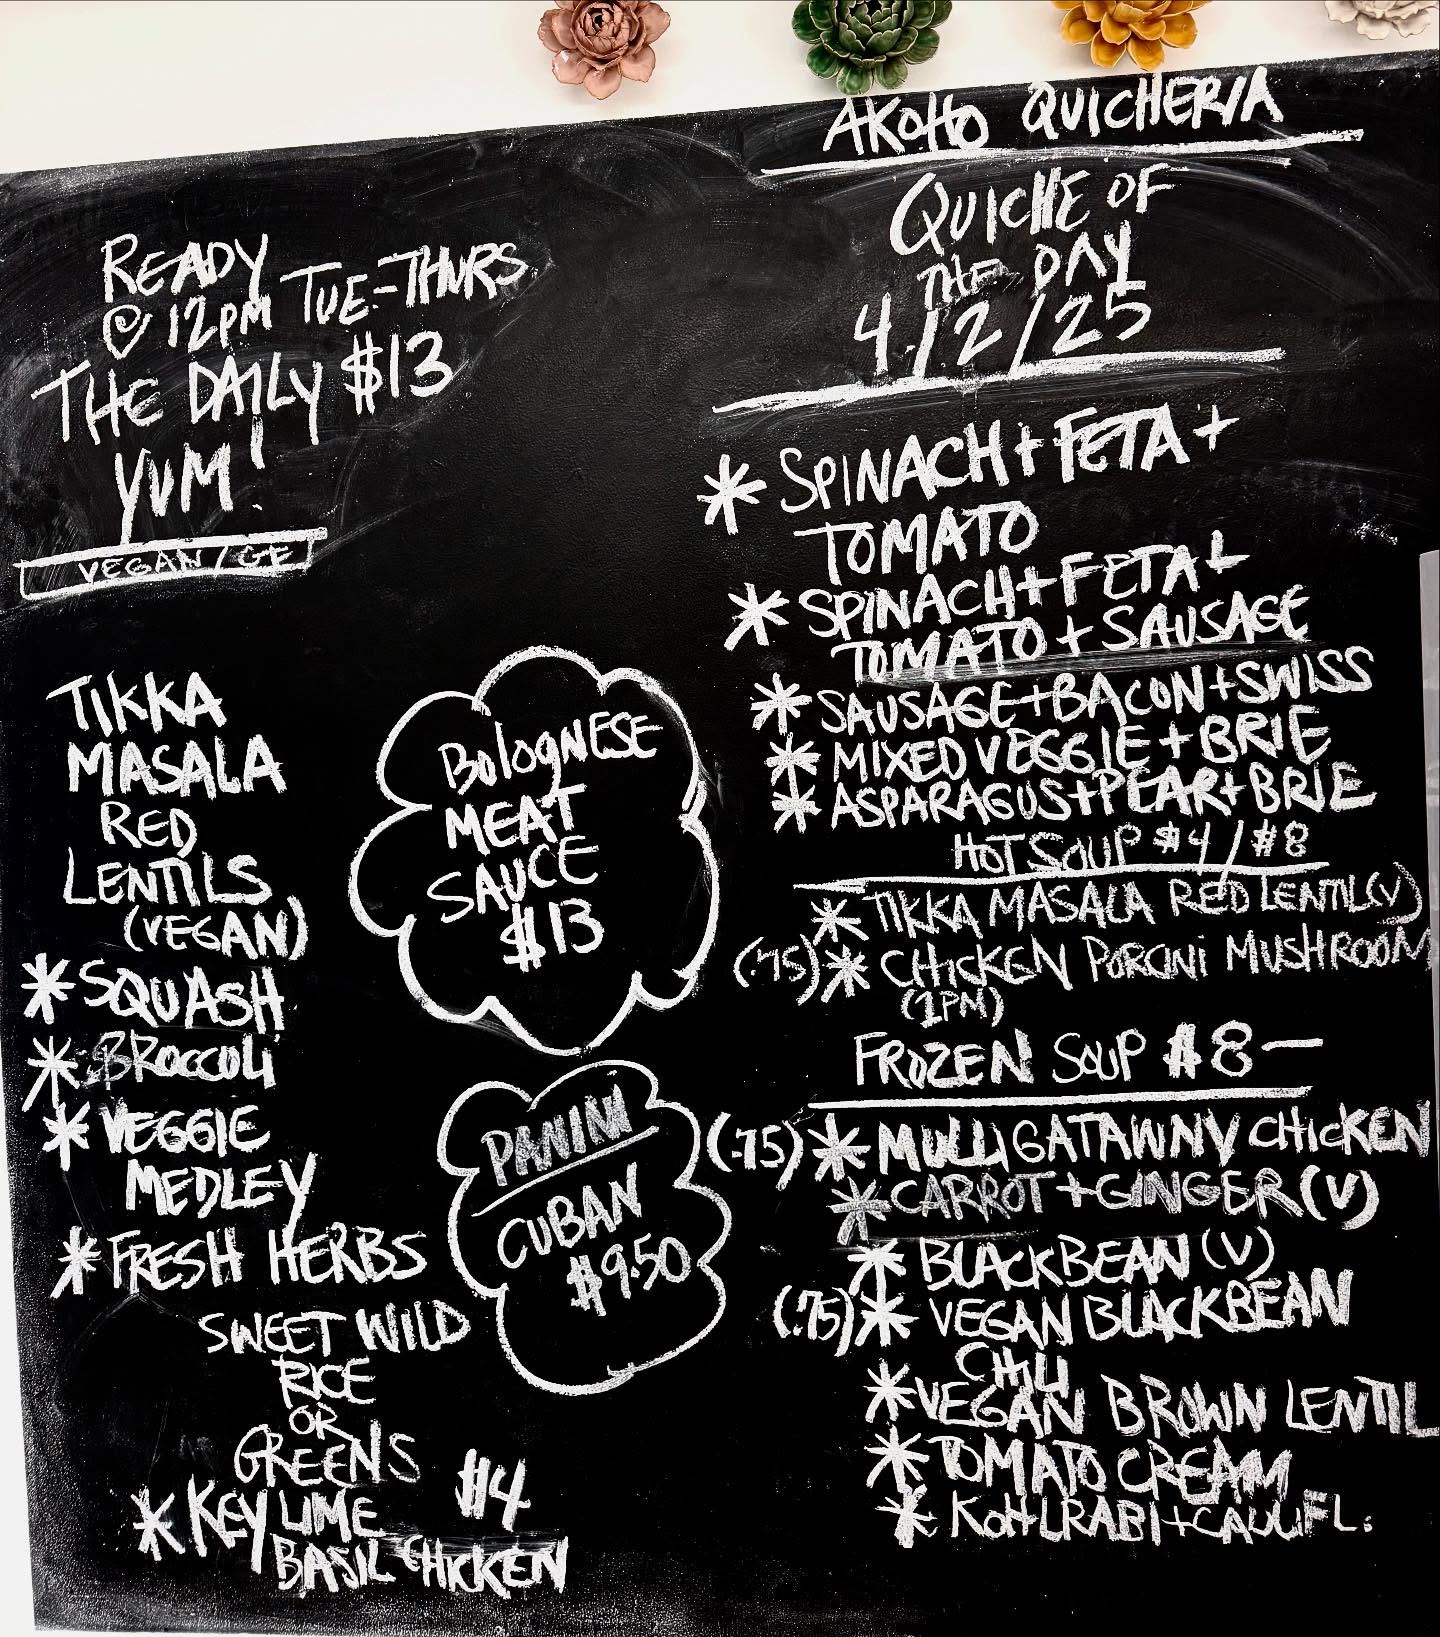 AKOHO QUICHERIA
QUICHE OF
THE DAY
4/2/25
* SPINACH + FETA +
TOMATO
* SPINACH + FETA +
TOMATO + SAUSAGE
* SAUSAGE + BACON + SWISS
* MIXED VEGGIE + BRIE
* ASPARAGUS + PEAR + BRIE
HOT SOUP $4/$8
* TIKKA MASALA RED LENTIL (V)
(.75) * CHICKEN PORCINI MUSHROOM
(1PM)
FROZEN SOUP $8—
(.75) * MULLIGATAWNY CHICKEN
* CARROT + GINGER (V)
* BLACKBEAN (V)
(.75) * VEGAN BLACKBEAN
CHILI
* VEGAN BROWN LENTIL
* TOMATO CREAM
* KOHLRABI + CAULIFL.
READY
@ 12PM TUE-THURS
THE DAILY $13
YUM!
VEGAN / GF
TIKKA
MASALA
RED
LENTILS
(VEGAN)
* SQUASH
* BROCCOLI
* VEGGIE
MEDLEY
* FRESH HERBS
SWEET WILD
RICE
OR
GREENS
* KEY LIME $4
BASIL CHICKEN
BOLOGNESE
MEAT
SAUCE
$13
PANINI
CUBAN
$9.50